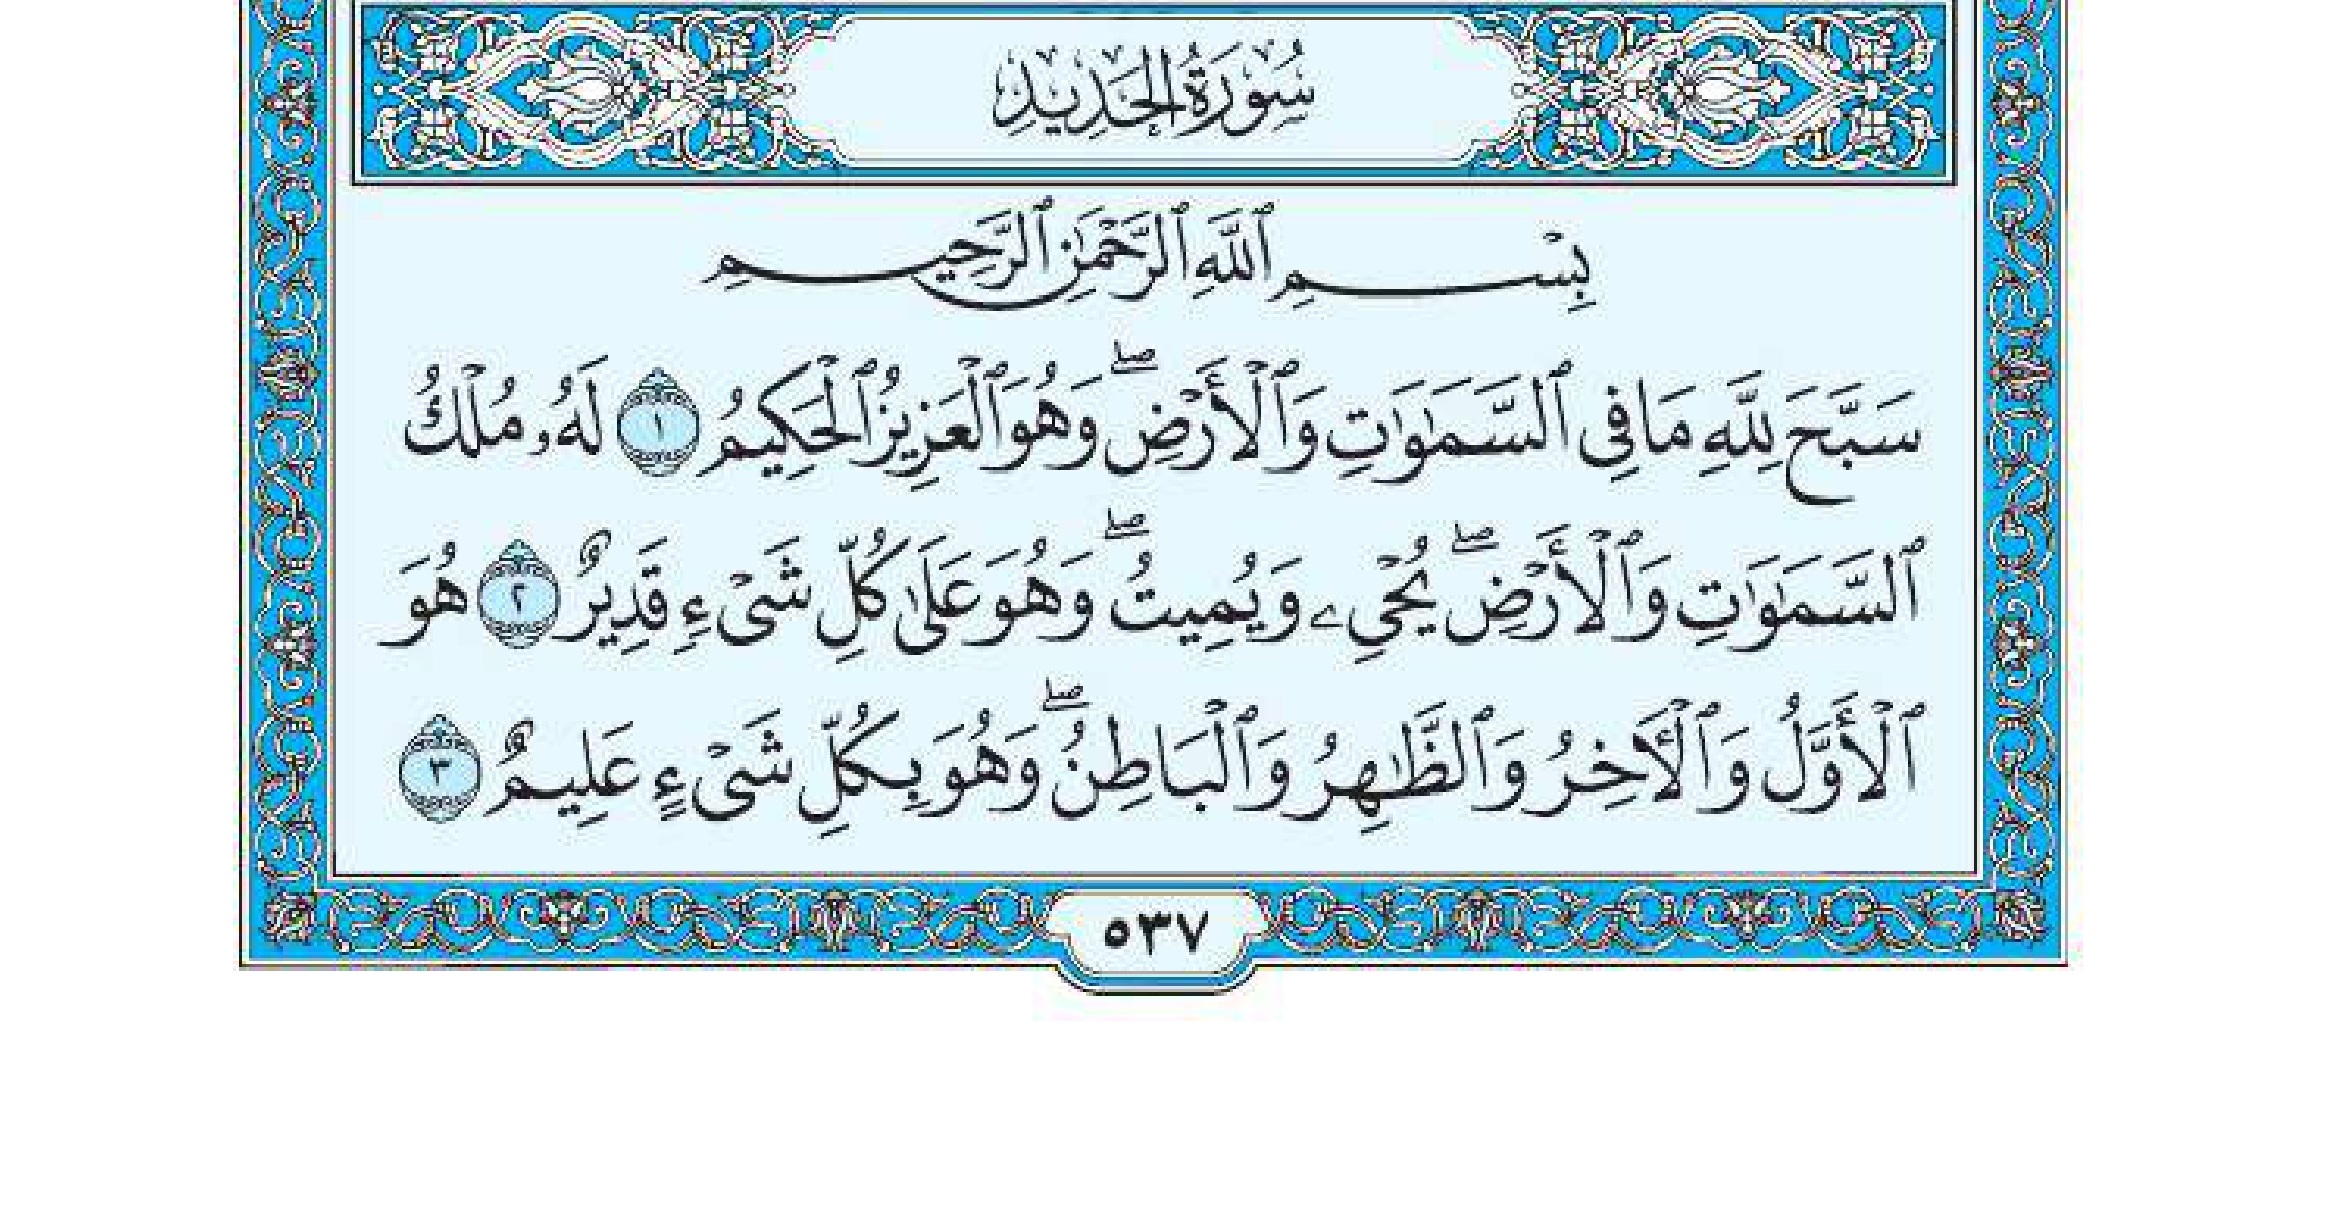 سُورَةُ الْحَدِيدِ
بِسْمِ ٱللَّهِ ٱلرَّحْمَٰنِ ٱلرَّحِيمِ
سَبَّحَ لِلَّهِ مَا فِى ٱلسَّمَٰوَٰتِ وَٱلْأَرْضِۖ وَهُوَ ٱلْعَزِيزُ ٱلْحَكِيمُ ١ لَهُۥ مُلْكُ
ٱلسَّمَٰوَٰتِ وَٱلْأَرْضِۖ يُحْىِۦ وَيُمِيتُۖ وَهُوَ عَلَىٰ كُلِّ شَىْءٍ قَدِيرٌ ٢ هُوَ
ٱلْأَوَّلُ وَٱلْأَخِرُ وَٱلظَّٰهِرُ وَٱلْبَاطِنُۖ وَهُوَ بِكُلِّ شَىْءٍ عَلِيمٌ ٣
٥٣٧